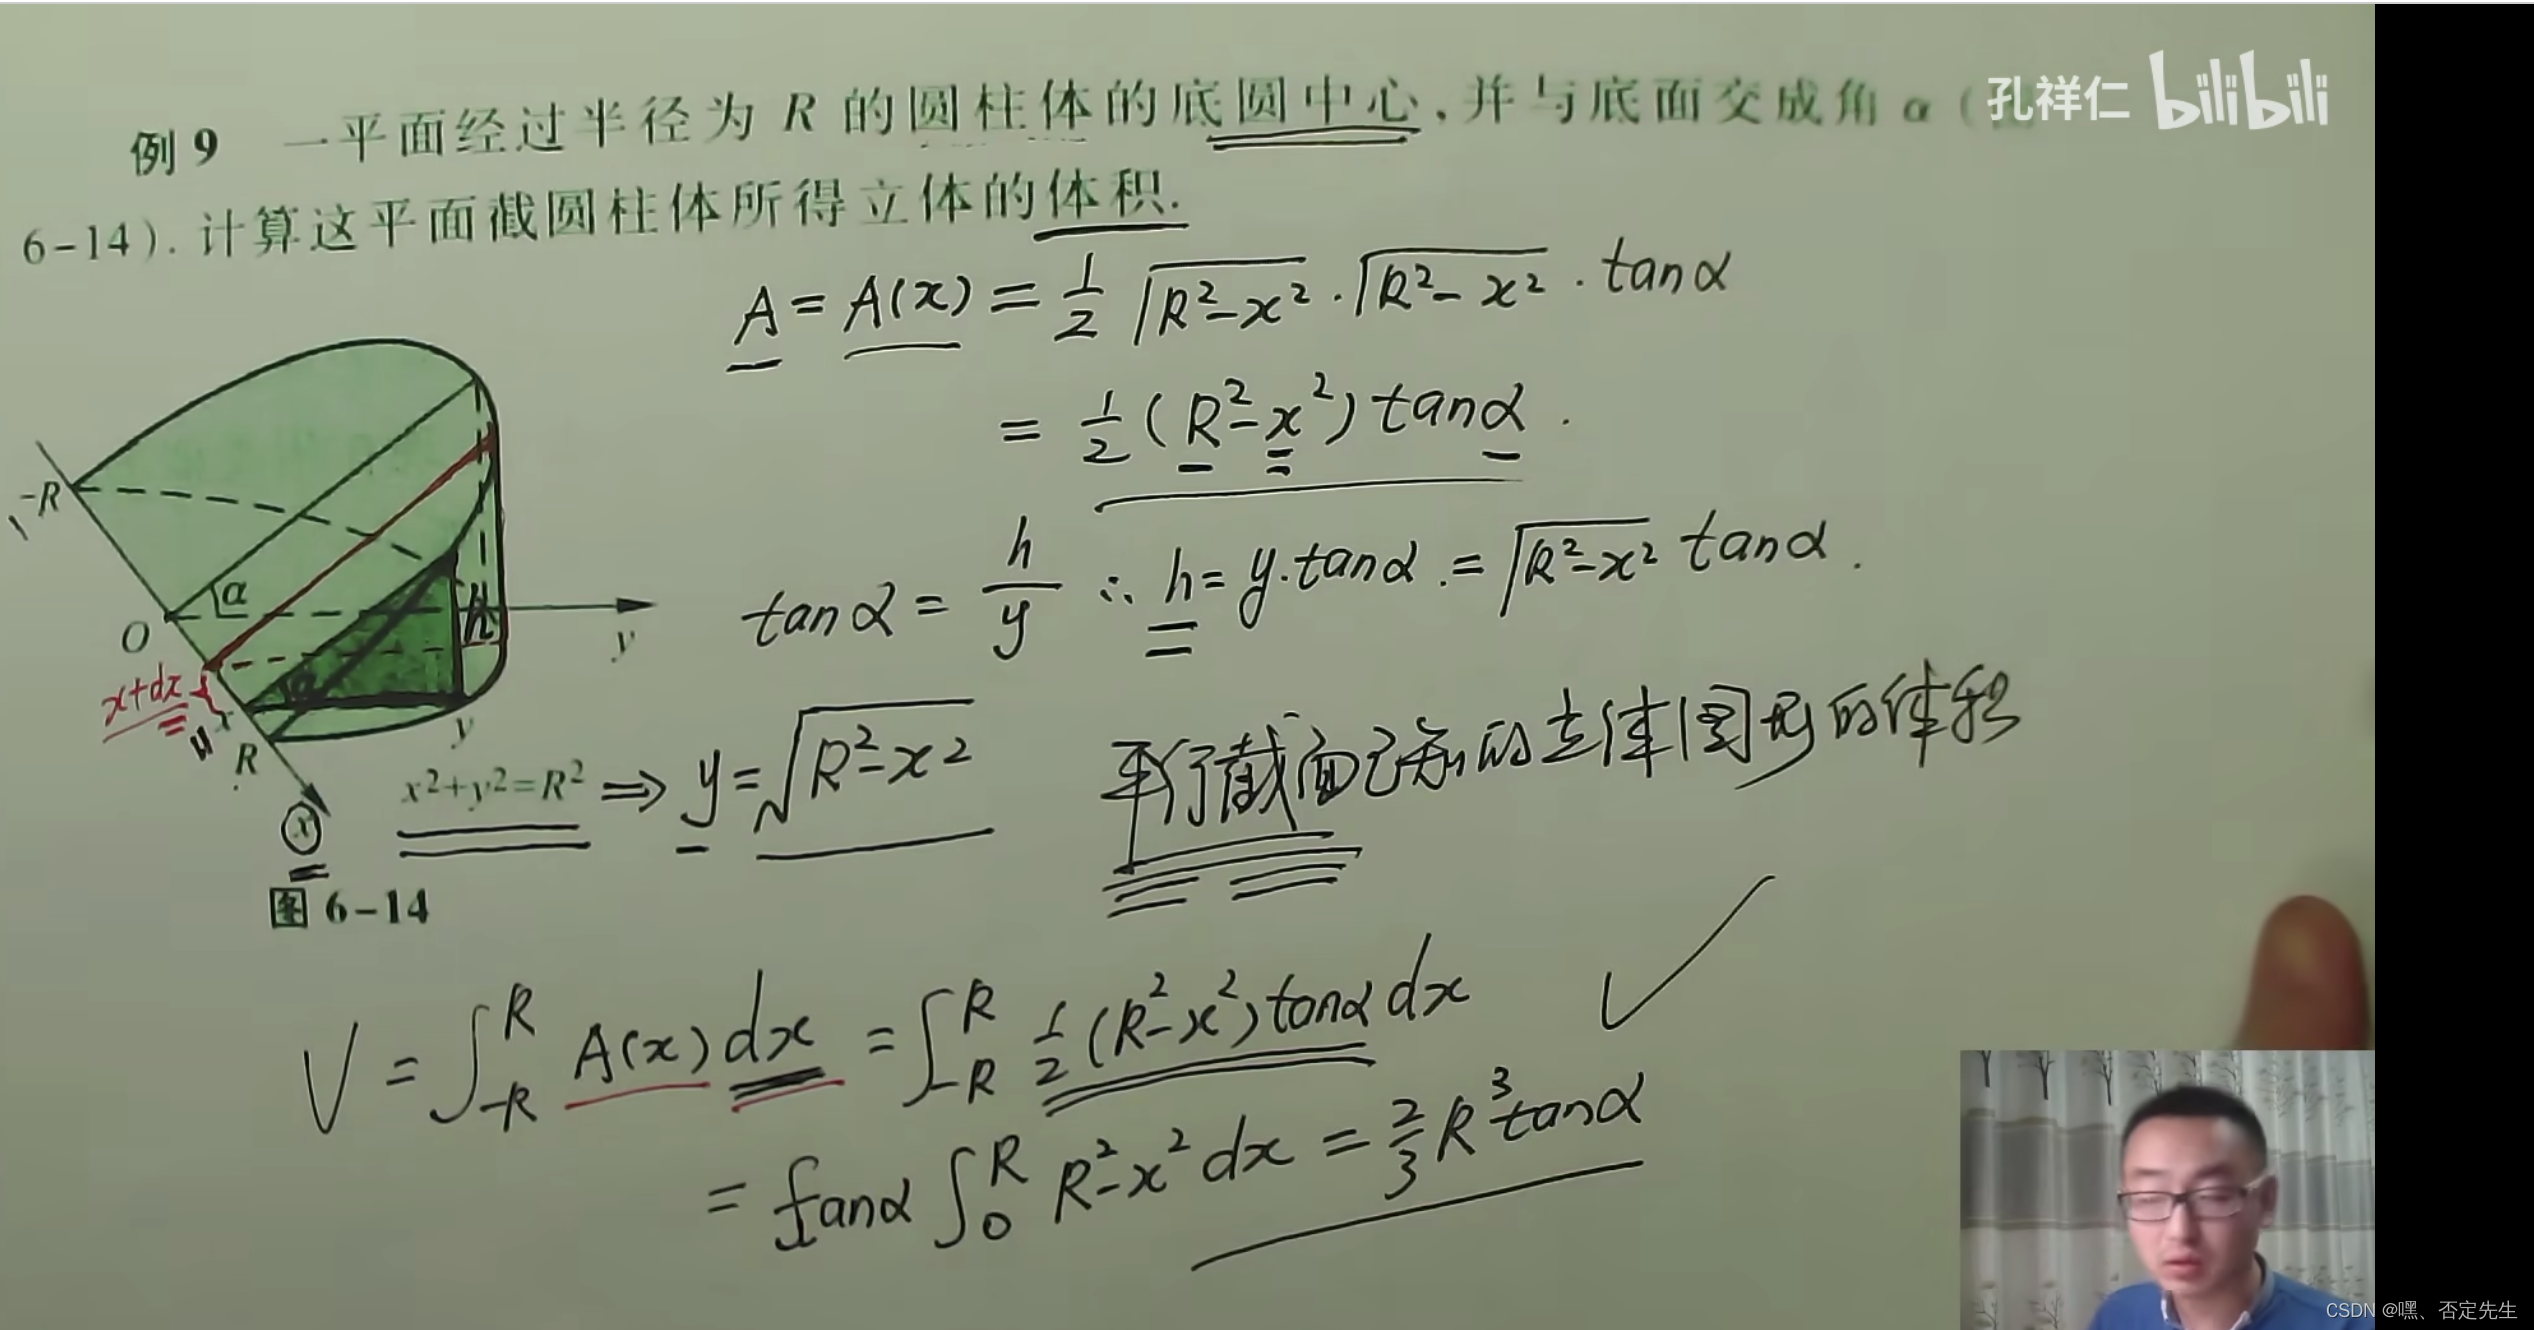 孔祥仁 bilibili
例9 一平面经过半径为 R 的圆柱体的底圆中心,并与底面交成角 α (
6-14). 计算这平面截圆柱体所得立体的体积.
A = A(x) = 1/2 √(R²-x²) · √(R²-x²) · tanα
= 1/2 (R²-x²) tanα .
tanα = h/y ∴ h = y·tanα . = √(R²-x²) tanα .
-R
α
O
h
y
x+dx
x
α
y
R
x
x²+y²=R² ⇒ y=√(R²-x²)
平行截面已知的立体图形的体积
图 6-14
V = ∫_{-R}^{R} A(x) dx = ∫_{-R}^{R} 1/2 (R²-x²) tanα dx
= tanα ∫_0^R R²-x² dx = 2/3 R³ tanα
CSDN @嘿、否定先生